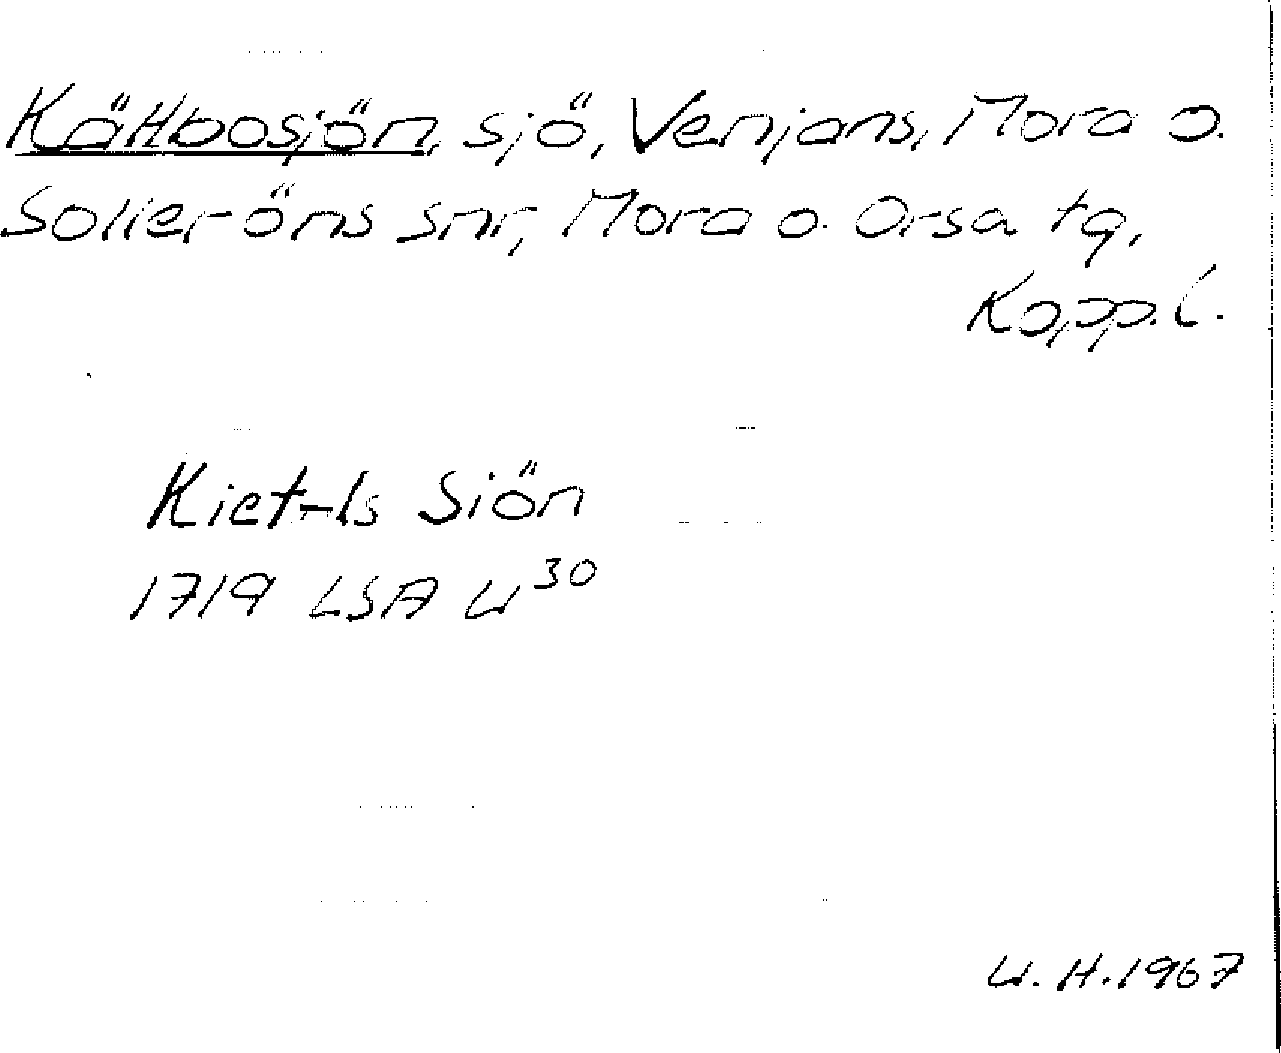 Kättbosjön, sjö, Venjans, Mora o.
Solleröns snr, Mora o. Orsa tg,
Kopp. l.
Siön
1719 LSA W 30
W. H. 1967